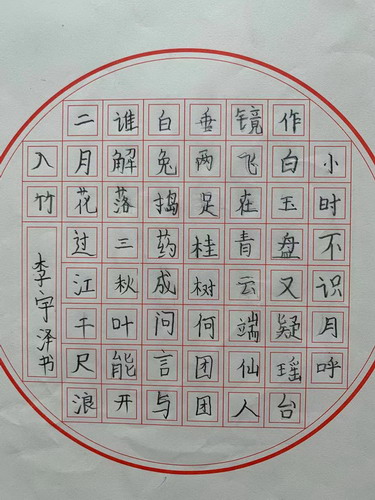 小时不识月呼
作白玉盘又疑瑶台
镜飞在青云端仙人
垂两足桂树何团团
白兔捣药成问言与
谁解落三秋叶能开
二月花过江千尺浪
入竹
李宇泽书